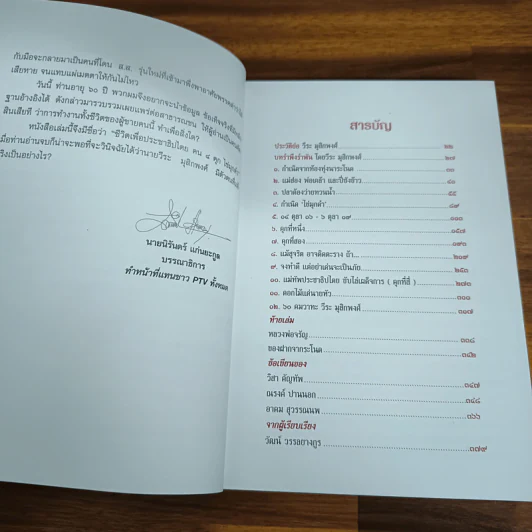 กับมือจะกลายมาเป็นคนที่โดน ส.ส. รุ่นใหม่ที่เข้ามาพึ่งพาอาศัย
เสียหาย จนแทบแผ่เมตตาให้กันไม่ไหว
วันนี้ ท่านอายุ ๖๐ ปี พวกผมจึงอยากจะนำข้อมูล ข้อเท็จจริง
ฐานอ้างอิงได้ ดังกล่าวมารวบรวมเผยแพร่ต่อสาธารณชน ให้ผู้อ่านเป็นคน
สินเสียที ว่าการทำงานทั้งชีวิตของผู้ชายคนนี้ ทำเพื่อสิ่งใด?
หนังสือเล่มนี้จึงมีชื่อว่า "ชีวิตเพื่อประชาธิปไตย คน ๔ คุก ไข่มุกดำ"
เมื่อท่านอ่านจบก็น่าจะพอที่จะวินิจฉัยได้ว่านายวีระ มุสิกพงศ์ มีตัวตน
จริงเป็นอย่างไร?
นายนิรันดร์ แก่นยะกูล
บรรณาธิการ
ทำหน้าที่แทนชาว PTV ทั้งหมด
สารบัญ
ประวัติย่อ วีระ มุสิกพงศ์ ๒๒
บทรำพึงรำพัน โดยวีระ มุสิกพงศ์ ๒๗
๑. กำเนิดจากท้องทุ่งนาระโนด ๓๐
๒. แม่สอง พ่อเคล้า และปี่ซังข้าว ๔๐
๓. ปลาต้องว่ายทวนน้ำ ๕๕
๔. กำเนิด "ไข่มุกดำ" ๘๙
๕. ๑๔ ตุลา ๑๖ - ๖ ตุลา ๑๙
๖. คุกที่หนึ่ง ๑๕๗
๗. คุกที่สอง
๘. แม้สุจริต อาจติดตะราง ถ้า... ๒๐๙
๙. จงทำดี แต่อย่าเด่นจะเป็นภัย
๑๐. แม่ทัพประชาธิปไตย ขับไล่เผด็จการ ( คุกที่สี่ ) ๒๗๐
๑๑. ดอกไม้แด่นายหัว ๓๐๐
๑๒. ๖๐ คมวาทะ วีระ มุสิกพงศ์ ๓๐๗
ท้ายเล่ม
หลวงพ่อจรัญ
ของฝากจากระโนด
ข้อเขียนของ
วิสา คัญทัพ ๓๔๗
ณรงค์ ปานนอก
อาคม สุวรรณนพ ๓๖๖
จากผู้เรียบเรียง
วัฒน์ วรรลยางกูร ๓๗๙